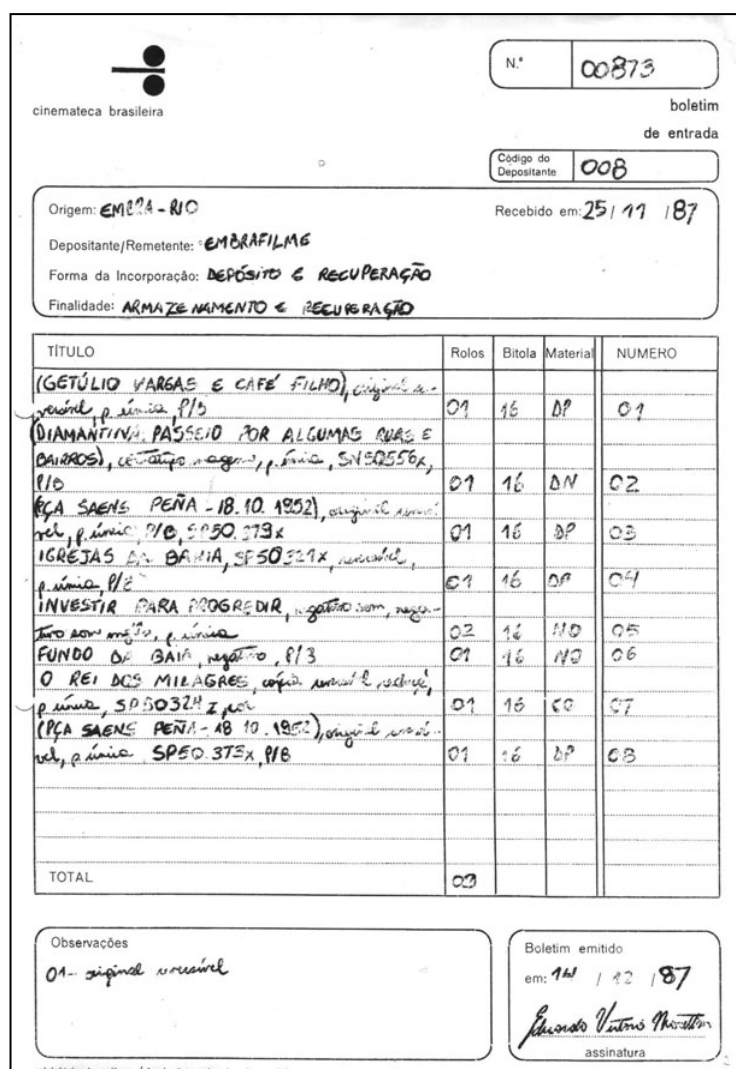 N.º 00873
cinemateca brasileira
boletim
de entrada
Código do Depositante 008
Origem: EMBRA-RIO
Recebido em: 25/11/87
Depositante/Remetente: EMBRAFILME
Forma da Incorporação: DEPÓSITO E RECUPERAÇÃO
Finalidade: ARMAZENAMENTO E RECUPERAÇÃO
TÍTULO Rolos Bitola Material NUMERO
(GETÚLIO VARGAS E CAFÉ FILHO), original re-
versível, p. única, P/B 01 16 DP 01
(DIAMANTINA: PASSEIO POR ALGUMAS RUAS E
BAIRROS), p. única, SN50556x,
P/B 01 16 DN 02
(PÇA SAENS PEÑA - 18.10.1952), original reversí-
vel, p. única, P/B, SP50.373x 01 16 DP 03
IGREJAS DA BAHIA, SP50321x, reversível,
p. única, P/B 01 16 DP 04
INVESTIR PARA PROGREDIR, negativo som, nega-
tivo som p. única 02 16 NO 05
FUNDO DA BAIA, negativo, P/B 01 16 NO 06
O REI DOS MILAGRES, cópia reversível
p. única, SP50324z, cor 01 16 CO 07
(PÇA SAENS PEÑA - 18 10.1952), original reversí-
vel, p. única SP50.373x, P/B 01 16 DP 08
TOTAL 09
Observações
01- original reversível
Boletim emitido
em: 14 / 12 / 87
Eduardo
assinatura